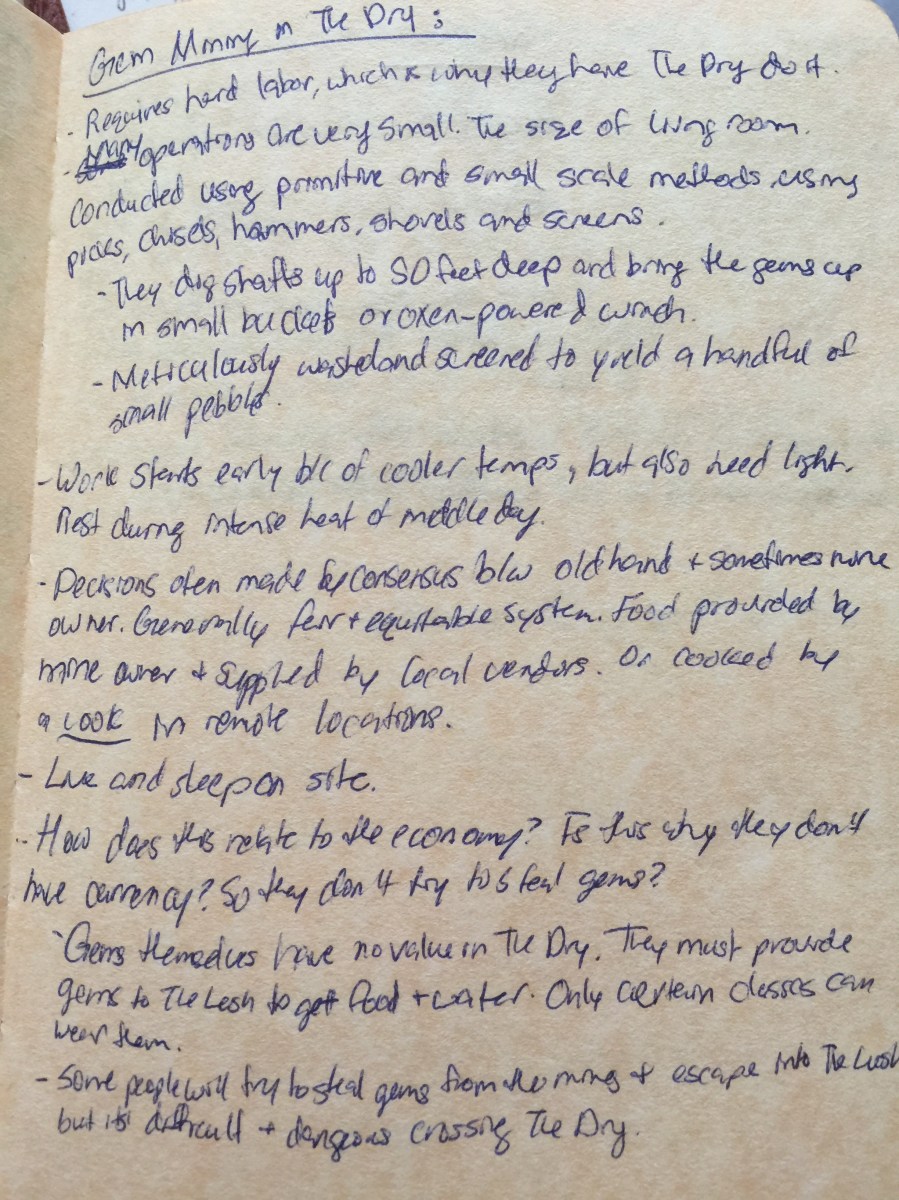 Gem Mining in The Dry:
- Requires hard labor, which is why they have The Dry do it.
- Many operations are very small. The size of living room.
Conducted using primitive and small scale methods, using
picks, chisels, hammers, shovels and screens.
- They dig shafts up to 50 feet deep and bring the gems up
in small buckets or oxen-powered winch.
- Meticulously washed and screened to yield a handful of
small pebbles.
- Work starts early b/c of cooler temps, but also need light.
Rest during intense heat of middle day.
- Decisions often made by consensus b/w old hand + sometimes mine
owner. Generally fair + equitable system. Food provided by
mine owner + supplied by local vendors. Or cooked by
a cook in remote locations.
- Live and sleep on site.
- How does this relate to the economy? Is this why they don't
have currency? So they don't try to steal gems?
Gems themselves have no value in The Dry. They must provide
gems to The Lush to get food + water. Only certain classes can
wear them.
- Some people will try to steal gems from the mines + escape into The Lush
but it's difficult + dangerous crossing The Dry.